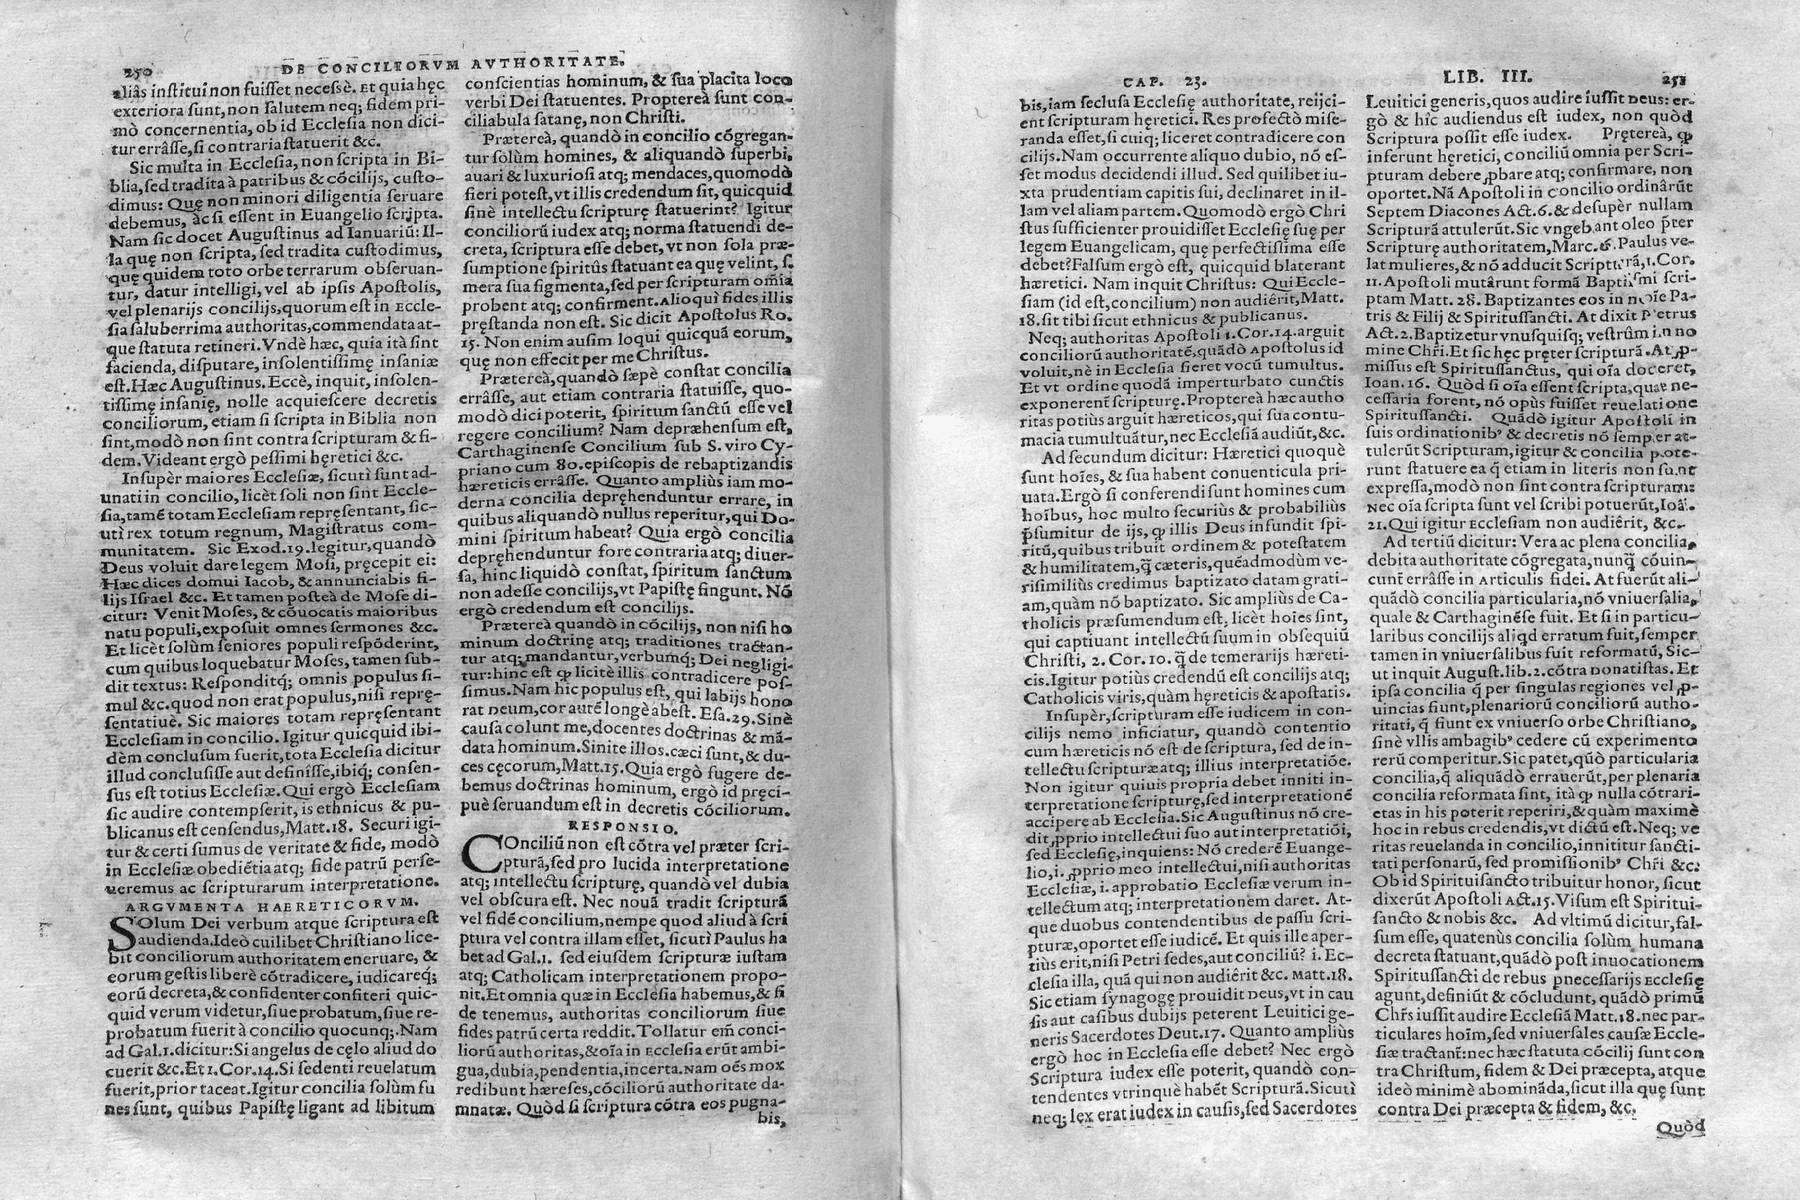 250 DE CONCILIORVM AVTHORITATE.
aliâs institui non fuisset necessè. Et quia hęc
exteriora sunt, non salutem neq; fidem pri-
mò concernentia, ob id Ecclesia non dici-
tur errâsse, si contraria statuerit &c.
Sic multa in Ecclesia, non scripta in Bi-
blia, sed tradita à patribus & cōcilijs, custo-
dimus: Quę non minori diligentia seruare
debemus, ac si essent in Euangelio scripta.
Nam sic docet Augustinus ad Ianuariū: Il-
la quę non scripta, sed tradita custodimus,
quę quidem toto orbe terrarum obseruan-
tur, datur intelligi, vel ab ipsis Apostolis,
vel plenarijs concilijs, quorum est in Eccle-
sia saluberrima authoritas, commendata at-
que statuta retineri. Vndè hæc, quia ità sint
facienda, disputare, insolentissimę insaniæ
est. Hæc Augustinus. Eccè, inquit, insolen-
tissimę insanię, nolle acquiescere decretis
conciliorum, etiam si scripta in Biblia non
sint, modò non sint contra scripturam & fi-
dem. Videant ergò pessimi hęretici &c.
Insupèr maiores Ecclesiæ, sicuti sunt ad-
unati in concilio, licèt soli non sint Eccle-
sia, tamē totam Ecclesiam repręsentant, sic-
uti rex totum regnum, Magistratus com-
munitatem. Sic Exod. 19. legitur, quandò
Deus voluit dare legem Mosi, pręcepit ei:
Hæc dices domui Iacob, & annunciabis fi-
lijs Israel &c. Et tamen posteà de Mose di-
citur: Venit Moses, & cōuocatis maioribus
natu populi, exposuit omnes sermones &c.
Et licèt solùm seniores populi respōderint,
cum quibus loquebatur Moses, tamen sub-
dit textus: Responditq; omnis populus si-
mul &c. quod non erat populus, nisi repre-
sentatiuè. Sic maiores totam repręsentant
Ecclesiam in concilio. Igitur quicquid ibi-
dèm conclusum fuerit, tota Ecclesia dicitur
illud conclusisse aut definisse, ibiq; consen-
sus est totius Ecclesiæ. Qui ergò Ecclesiam
sic audire contempserit, is ethnicus & pu-
blicanus est censendus, Matt. 18. Securi igi-
tur & certi sumus de veritate & fide, modò
in Ecclesiæ obediētia atq; fide patrū perse-
ueremus ac scripturarum interpretatione.
ARGVMENTA HAERETICORVM.
SOlum Dei verbum atque scriptura est
audienda. Ideò cuilibet Christiano lice-
bit conciliorum authoritatem eneruare, &
eorum gestis liberè cōtradicere, iudicareq;
eorū decreta, & confidenter confiteri quic-
quid verum videtur, siue probatum, siue re-
probatum fuerit à concilio quocunq;. Nam
ad Gal. 1. dicitur: Si angelus de cęlo aliud do
cuerit &c. Et 1. Cor. 14. Si sedenti reuelatum
fuerit, prior taceat. Igitur concilia solùm fu
nes sunt, quibus Papistę ligant ad libitum
conscientias hominum, & sua placita loco
verbi Dei statuentes. Proptereà sunt con-
ciliabula satanę, non Christi.
Prætereà, quandò in concilio cōgregan-
tur solùm homines, & aliquandò superbi,
auari & luxuriosi atq; mendaces, quomodò
fieri potest, vt illis credendum sit, quicquid
sinè intellectu scripturę statuerint? Igitur
conciliorū iudex atq; norma statuendi de-
creta, scriptura esse debet, vt non sola præ-
sumptione spiritûs statuant ea quę velint, s.
mera sua figmenta, sed per scripturam omīa
probent atq; confirment. Alioquì fides illis
pręstanda non est. Sic dicit Apostolus Ro.
15. Non enim ausim loqui quicquā eorum,
quę non effecit per me Christus.
Prætereà, quandò sæpè constat concilia
errâsse, aut etiam contraria statuisse, quo-
modò dici poterit, spiritum sanctū esse vel
regere concilium? Nam depræhensum est,
Carthaginense Concilium sub S. viro Cy-
priano cum 80. episcopis de rebaptizandis
hæreticis errâsse. Quanto ampliùs iam mo-
derna concilia depręhenduntur errare, in
quibus aliquandò nullus reperitur, qui Do-
mini spiritum habeat? Quia ergò concilia
depręhenduntur fore contraria atq; diuer-
sa, hinc liquidò constat, spiritum sanctum
non adesse concilijs, vt Papistę fingunt. Nō
ergò credendum est concilijs.
Prætereà quandò in cōcilijs, non nisi ho
minum doctrinę atq; traditiones tractan-
tur atq; mandantur, verbumq; Dei negligi-
tur: hinc est ꝙ licitè illis contradicere pos-
simus. Nam hic populus est, qui labijs hono
rat Deum, cor autē longè abest. Esa. 29. Sinè
causa colunt me, docentes doctrinas & mā-
data hominum. Sinite illos. cæci sunt, & du-
ces cęcorum, Matt. 15. Quia ergò fugere de-
bemus doctrinas hominum, ergò id pręci-
puè seruandum est in decretis cōciliorum.
RESPONSIO.
COnciliū non est cōtra vel præter scri-
pturā, sed pro lucida interpretatione
atq; intellectu scripturę, quandò vel dubia
vel obscura est. Nec nouā tradit scripturā
vel fidē concilium, nempe quod aliud à scri
ptura vel contra illam esset, sicutì Paulus ha
bet ad Gal. 1. sed eiusdem scripturæ iustam
atq; Catholicam interpretationem propo-
nit. Et omnia quæ in Ecclesia habemus, & si
de tenemus, authoritas conciliorum siue
fides patrū certa reddit. Tollatur em̄ conci-
liorū authoritas, & oīa in Ecclesia erūt ambi-
gua, dubia, pendentia, incerta. Nam oēs mox
redibunt hæreses, cōciliorū authoritate da-
mnatæ. Quòd si scriptura cōtra eos pugna-
bis,
CAP. 23. LIB. III. 251
bis, iam seclusa Ecclesię authoritate, reijci-
ent scripturam hęretici. Res profectò mise-
randa esset, si cuiq; liceret contradicere con
cilijs. Nam occurrente aliquo dubio, nō es-
set modus decidendi illud. Sed quilibet iu-
xta prudentiam capitis sui, declinaret in il-
lam vel aliam partem. Quomodò ergò Chri
stus sufficienter prouidisset Ecclesię suę per
legem Euangelicam, quę perfectissima esse
debet? Falsum ergò est, quicquid blaterant
hæretici. Nam inquit Christus: Qui Eccle-
siam (id est, concilium) non audiêrit, Matt.
18. sit tibi sicut ethnicus & publicanus.
Neq; authoritas Apostoli 1. Cor. 14. arguit
conciliorū authoritatē, quādò Apostolus id
voluit, nè in Ecclesia fieret vocū tumultus.
Et vt ordine quodā imperturbato cunctis
exponerent scripturę. Proptereà hæc autho
ritas potiùs arguit hæreticos, qui sua contu-
macia tumultuātur, nec Ecclesiā audiūt, &c.
Ad secundum dicitur: Hæretici quoquè
sunt hoīes, & sua habent conuenticula pri-
uata. Ergò si conferendi sunt homines cum
hoībus, hoc multo securiùs & probabiliùs
p̄sumitur de ijs, ꝙ illis Deus infundit spi-
ritū, quibus tribuit ordinem & potestatem
& humilitatem, q̄ cæteris, quēadmodùm ve-
risimiliùs credimus baptizato datam grati-
am, quàm nō baptizato. Sic ampliùs de Ca-
tholicis præsumendum est, licèt hoīes sint,
qui captiuant intellectū suum in obsequiū
Christi, 2. Cor. 10. q̄ de temerarijs hæreti-
cis. Igitur potiùs credendū est concilijs atq;
Catholicis viris, quàm hęreticis & apostatis.
Insupèr, scripturam esse iudicem in con-
cilijs nemo inficiatur, quandò contentio
cum hæreticis nō est de scriptura, sed de in-
tellectu scripturæ atq; illius interpretatiōe.
Non igitur quiuis propria debet inniti in-
terpretatione scripturę, sed interpretationē
accipere ab Ecclesia. Sic Augustinus nō cre-
dit, ꝓprio intellectui suo aut interpretatiōi,
sed Ecclesię, inquiens: Nō crederē Euange-
lio, i. ꝓprio meo intellectui, nisi authoritas
Ecclesiæ, i. approbatio Ecclesiæ verum in-
tellectum atq; interpretationem daret. At-
que duobus contendentibus de passu scri-
pturæ, oportet esse iudicē. Et quis ille aper-
tiùs erit, nisi Petri sedes, aut conciliū? i. Ec-
clesia illa, quā qui non audiêrit &c. Matt. 18.
Sic etiam synagogę prouidit Deus, vt in cau
sis aut casibus dubijs peterent Leuitici ge-
neris Sacerdotes Deut. 17. Quanto ampliùs
ergò hoc in Ecclesia esse debet? Nec ergò
Scriptura iudex esse poterit, quandò con-
tendentes vtrinquè habēt Scripturā. Sicutì
neq; lex erat iudex in causis, sed Sacerdotes
Leuitici generis, quos audire iussit Deus: er-
gò & hic audiendus est iudex, non quòd
Scriptura possit esse iudex. Prętereà, ꝙ
inferunt hęretici, conciliū omnia per Scri-
pturam debere ꝓbare atq; confirmare, non
oportet. Nā Apostoli in concilio ordinârūt
Septem Diacones Act. 6. & desupèr nullam
Scripturā attulerūt. Sic vngebant oleo p̄ter
Scripturę authoritatem, Marc. 6. Paulus ve-
lat mulieres, & nō adducit Scripturā, 1. Cor.
11. Apostoli mutârunt formā Baptismi scri-
ptam Matt. 28. Baptizantes eos in noīe Pa-
tris & Filij & Spiritussancti. At dixit Petrus
Act. 2. Baptizetur vnusquisq; vestrûm in no
mine Chr̄i. Et sic hęc pręter scripturā. At ꝓ-
missus est Spiritussanctus, qui oīa doceret,
Ioan. 16. Quòd si oīa essent scripta, quae ne-
cessaria forent, nō opùs fuisset reuelatione
Spiritussancti. Quādò igitur Apostoli in
suis ordinationib⁹ & decretis nō semper at-
tulerūt Scripturam, igitur & concilia pote-
runt statuere ea q̄ etiam in literis non sunt
expressa, modò non sint contra scripturam:
Nec oīa scripta sunt vel scribi potuerūt, Ioā.
21. Qui igitur Ecclesiam non audiêrit, &c.
Ad tertiū dicitur: Vera ac plena concilia,
debita authoritate cōgregata, nunq̄ cōuin-
cunt̄ errâsse in Articulis fidei. At fuerūt ali-
quādò concilia particularia, nō vniuersalia,
quale & Carthaginēse fuit. Et si in particu-
laribus concilijs aliqd erratum fuit, semper
tamen in vniuersalibus fuit reformatū, Sic-
ut inquit August. lib. 2. cōtra Donatistas. Et
ipsa concilia q̄ per singulas regiones vel ꝓ-
uincias fiunt, plenariorū conciliorū autho-
ritati, q̄ fiunt ex vniuerso orbe Christiano,
sinè vllis ambagib⁹ cedere cū experimento
rerū comperitur. Sic patet, quōd particularia
concilia, q̄ aliquādò errauerūt, per plenaria
concilia reformata sint, ità ꝙ nulla cōtrari-
etas in his poterit reperiri, & quàm maximè
hoc in rebus credendis, vt dictū est. Neq; ve
ritas reuelanda in concilio, innititur sancti-
tati personarū, sed promissionib⁹ Chr̄i &c.
Ob id Spirituisancto tribuitur honor, sicut
dixerūt Apostoli Act. 15. Visum est Spiritui-
sancto & nobis &c. Ad vltimū dicitur, fal-
sum esse, quatenùs concilia solùm humana
decreta statuant, quādò post inuocationem
Spiritussancti de rebus pnecessarijs Ecclesię
agunt, definiūt & cōcludunt, quādò primū
Chr̄s iussit audire Ecclesiā Matt. 18. nec par-
ticulares hoīm, sed vniuersales causæ Eccle-
siæ tractant̄: nec hæc statuta cōcilij sunt con
tra Christum, fidem & Dei præcepta, atque
ideò minimè abomināda, sicut illa quę sunt
contra Dei præcepta & fidem, &c.
Quòd